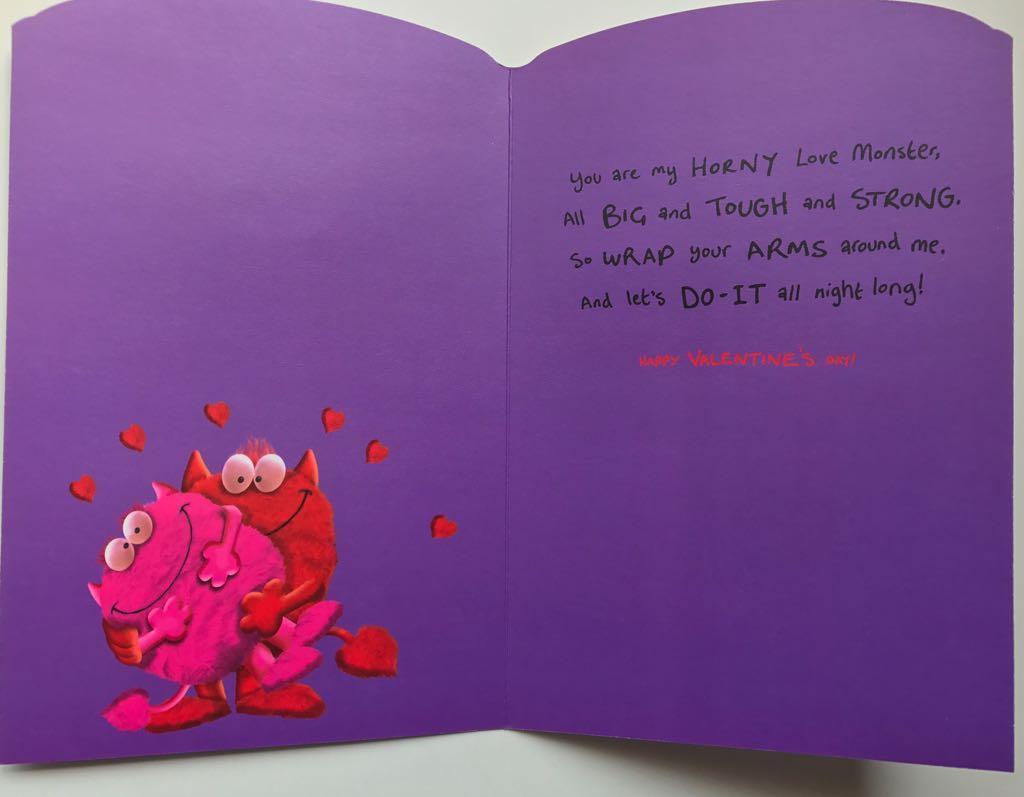 You are my HORNY Love Monster,
All BIG and TOUGH and STRONG.
So WRAP your ARMS around me,
And let's DO-IT all night long!
HAPPY VALENTINE'S DAY!